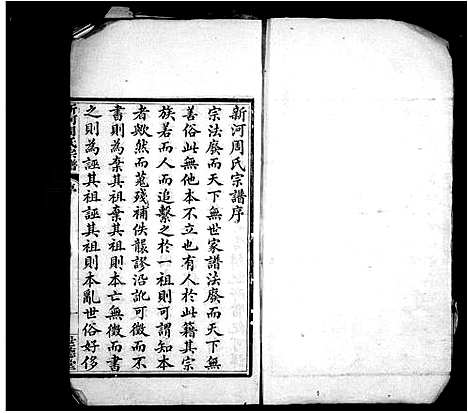 新河周氏宗譜序
宗法廢而天下無世家譜法廢而天下無
善俗此無他本不立也有人於此籍其宗
族若而人而追繫之於一祖則可謂知本
者歟然而蒐殘補佚襲謬沿訛可徵而不
書則為棄其祖棄其祖則本亡無徵而書
之則為誣其祖誣其祖則本亂世俗好侈
新河周氏宗譜
序